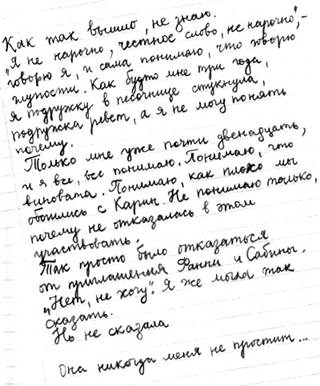 Как так вышло, не знаю.
"Я не нарочно, честное слово, не нарочно",-
говорю я, и сама понимаю, что говорю
глупости. Как будто мне три года,
я подружку в песочнице стукнула,
подружка ревет, а я не могу понять
почему.
Только мне уже почти двенадцать,
и я все, все понимаю. Понимаю, что
виновата. Понимаю, как плохо мы
обошлись с Карин. Не понимаю только,
почему не отказалась в этом
участвовать.
Так просто было отказаться
от приглашения Фанни и Сабины.
"Нет, не хочу". Я же могла так
сказать.
Но не сказала
Она никогда меня не простит...